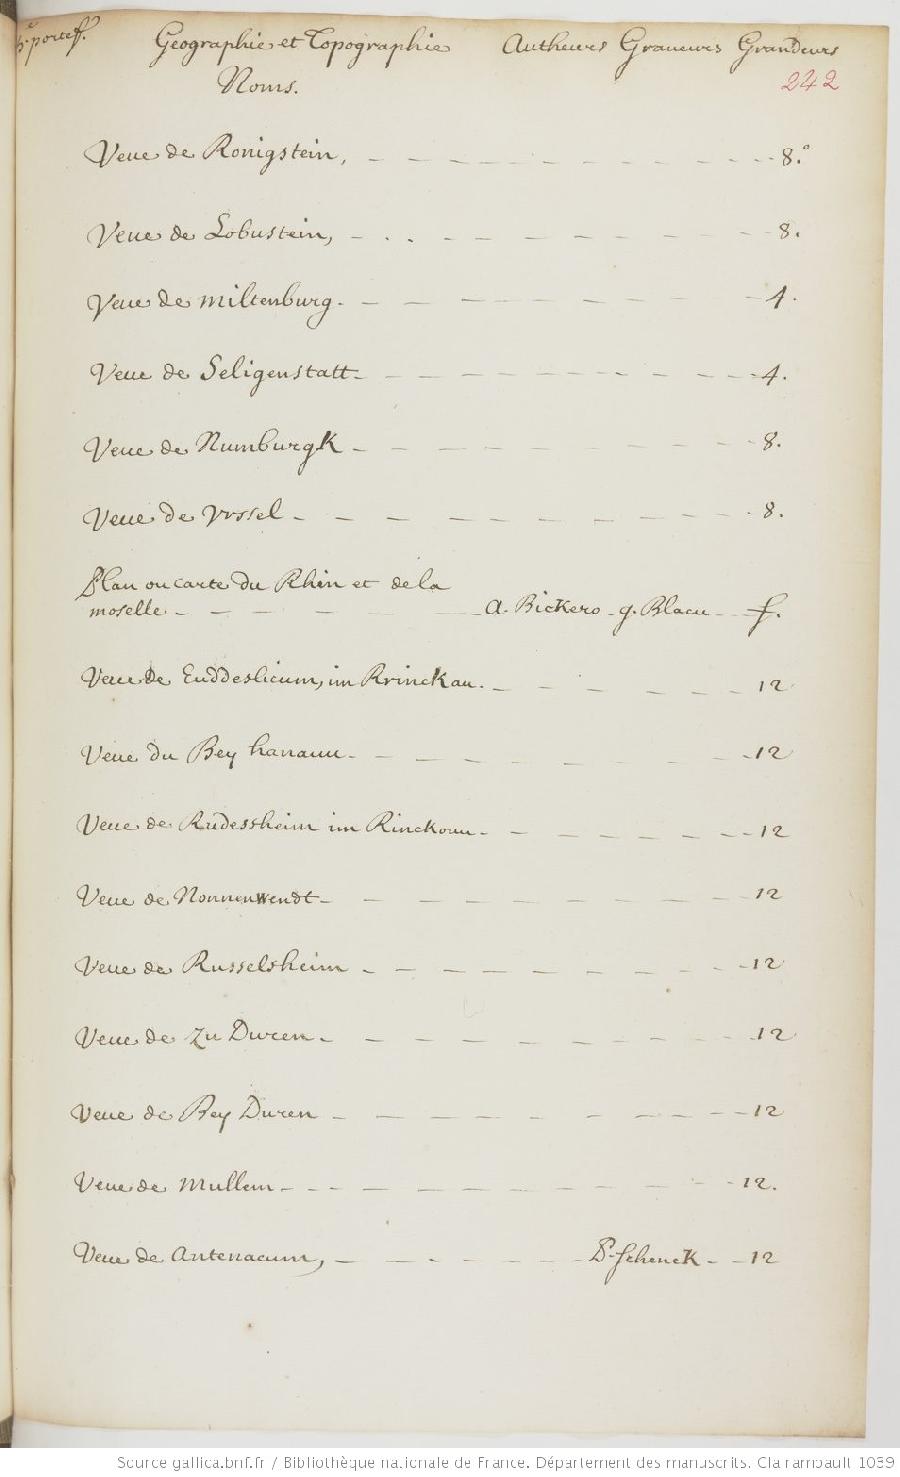 portef.
Geographie et Topographie Autheurs Graveurs Grandeurs
Noms.
242
Veue de Konigstein, - - - - - - - - - - 8.°
Veue de Lobustein, - . . - - - - - - - - - 8.
Veue de miltenburg. - - - - - - - - - 4.
Veue de Seligenstatt - - - - - - - - - - 4.
Veue de Numburgk - - - - - - - - - 8.
Veue de yssel - - - - - - - - - - 8.
Plan ou carte du Rhin et de la
moselle - - - - - - A. Bickero - g. Blaeu - - f.
Veue de Euddeslicum, im Rrinckau. - - - - - - 12
Veue du Bey hanauu - - - - - - - - 12
Veue de Rudessheim im Rinckouu - - - - - - - 12
Veue de Nonnenwendt - - - - - - - - - 12
Veue de Russelsheim - - - - - - - - - 12
Veue de Zu Duren - - - - - - - - - 12
Veue de Bey Duren - - - - - - - - - 12
Veue de Mullem - - - - - - - - - - 12.
Veue de Antenacum, - - - - - - P. Schenck - - 12
Source gallica.bnf.fr / Bibliothèque nationale de France. Département des manuscrits. Clairambault 1039